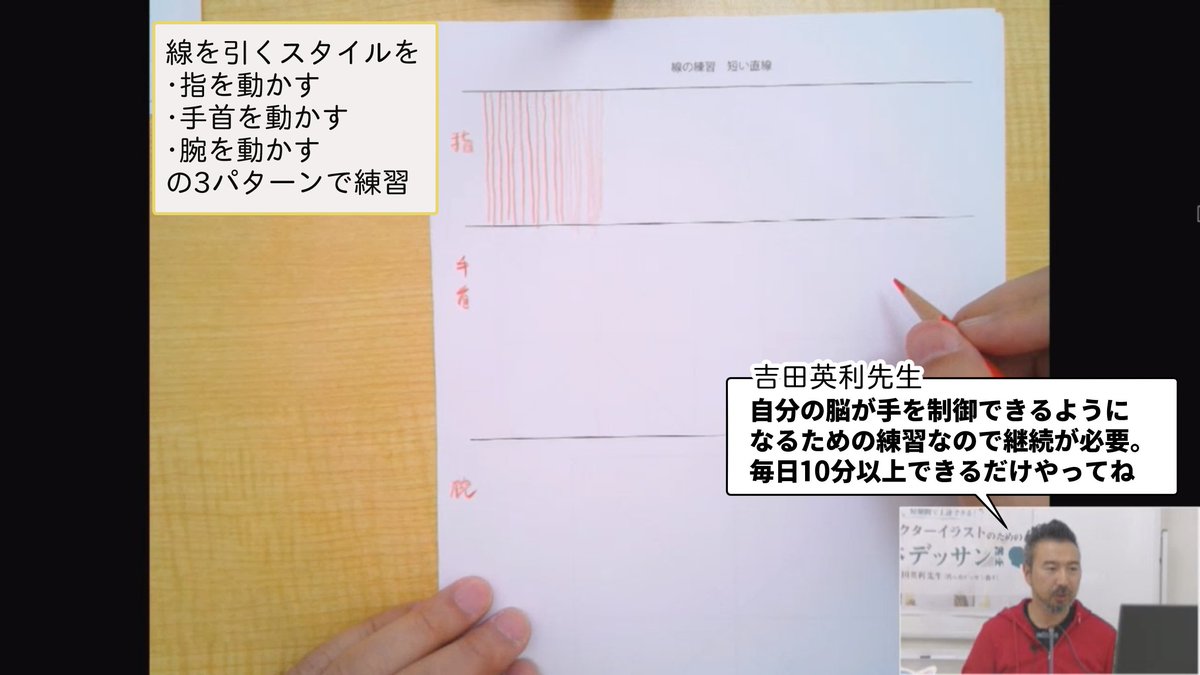 線を引くスタイルを
・指を動かす
・手首を動かす
・腕を動かす
の3パターンで練習
線の練習　短い直線
指
手首
腕
吉田英利先生
自分の脳が手を制御できるように
なるための練習なので継続が必要。
毎日10分以上できるだけやってね
短期間で上達できる!
クターイラストのための
デッサン 講座
田英利先生